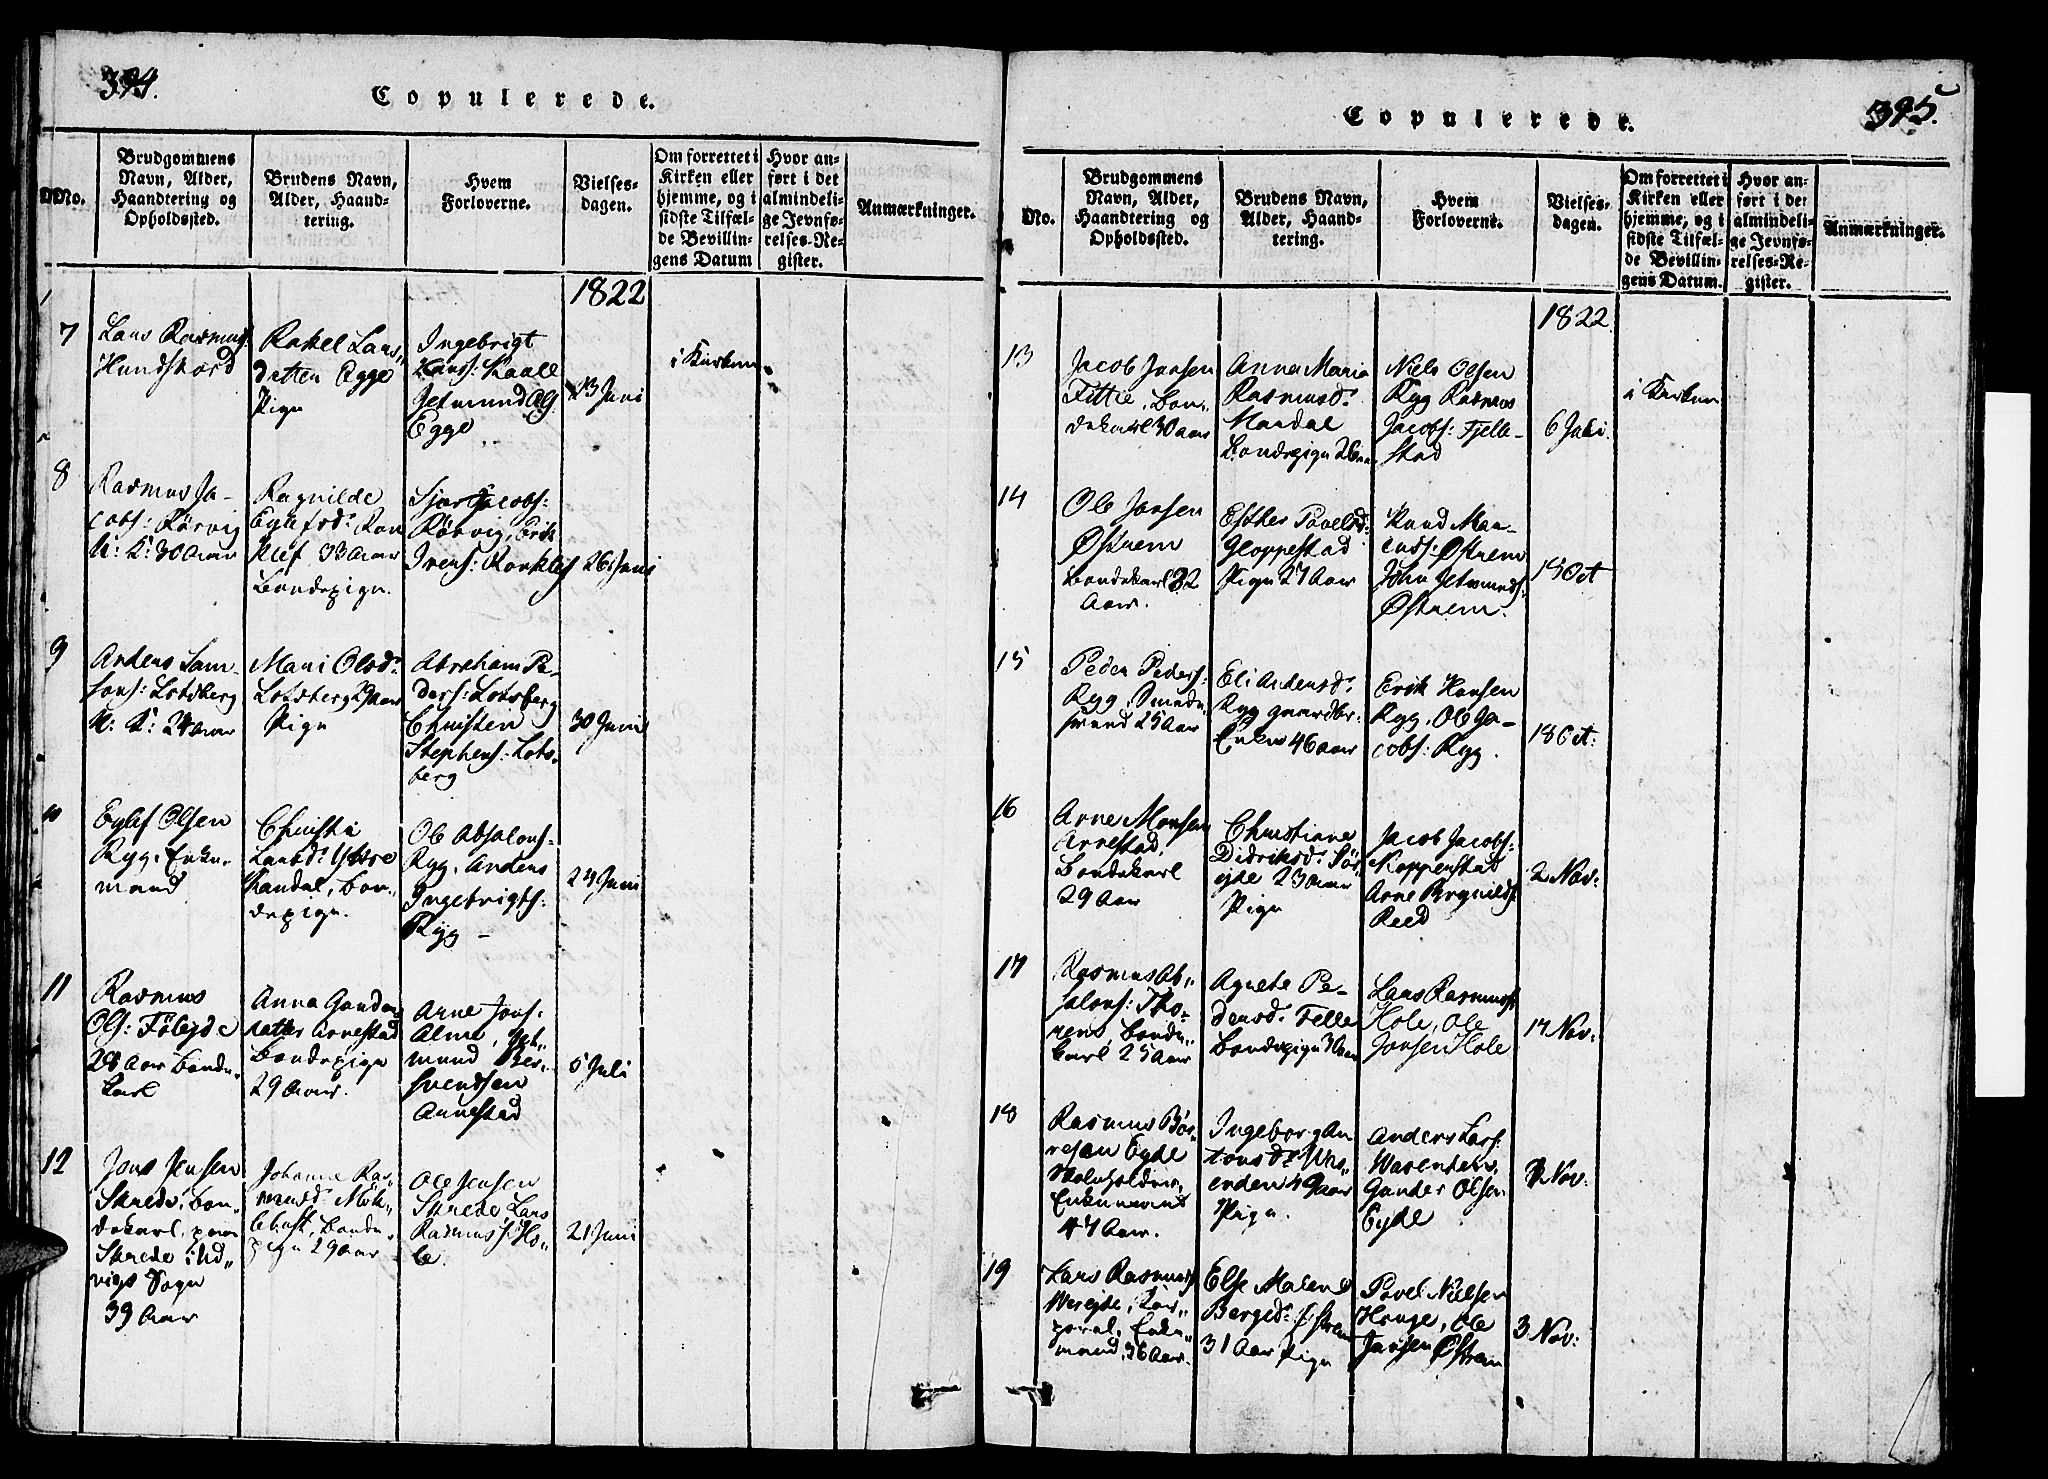 394.
Copulerede.
No.
Brudgommens
Navn, Alder,
Haandtering og
Opholdssted.
Brudens Navn,
Alder, Haand-
tering.
Hvem
Forloverne.
Vielses-
dagen.
Om forrettet i
Kirken eller
hjemme, og i
sidste Tilfæl-
de Bevillin-
gens Datum
Hvor an-
ført i det
almindeli-
ge Jevnfø-
relses-Re-
gister.
Anmærkninger.
1822
7
Lars Rasmus.
Hundskord
Rakel Lars-
datter Egge
Pige
Ingebrigt
Hans: Kaale
Jetmund Ols:
Egge
13 Juni
i Kirken
8
Rasmus Ja-
cobs: Rörvig
U: K: 30 Aar
Ragnilde
Eylefsd: Ron
klef 33 Aar
Bondepige.
Sjur Jacobs:
Rörvig, Erik
Ivers: Ronklef
26 Juni
9
Anders Sam-
sons: Lotsberg
U: K: 24 Aar
Mari Olsd:
Lotsberg 29 Aar
Pige
Abraham Pe-
ders: Lotsberg
Christen
Stephens: Lots-
berg
30 Juni
10
Eylef Olsen
Ryg, Enke-
mand
Christi
Larsd: Ytre
Kandal, Bon-
depige.
Ole Absalons-
Ryg, Anders
Ingebrigts:
Ryg -
24 Juni
11
Rasmus
Ols: Föleyde
28 Aar Bonde-
karl
Anna Gunders
datter Arnestad
Bondepige
29 Aar.
Arne Jons:
Alme, Jet-
mund Ber-
svendsen
Arnestad
5 Juli
12
Jens Jensen
Skrede, Bon-
dekarl, paa
Skrede i Ud-
vigs Sogn
39 Aar
Johanne Ras-
musd: Mök-
lebust, Bonde-
pige 29 Aar
Ole Jensen
Skrede Lars
Rasmus: Ho-
le.
21 Juni
395.
Copulerede.
No.
Brudgommens
Navn, Alder,
Haandtering og
Opholdssted.
Brudens Navn,
Alder, Haand-
tering.
Hvem
Forloverne.
Vielses-
dagen.
Om forrettet i
Kirken eller
hjemme, og i
sidste Tilfæl-
de Bevillin-
gens Datum.
Hvor an-
ført i det
almindeli-
ge Jevnfø-
relses-Re-
gister.
Anmærkninger.
1822.
13
Jacob Jansen
Fittie, Bon-
dekarl 30 Aar
Anna Maria
Rasmusd:
Mardal
Bondepige 26 Aar
Niels Olsen
Ryg Rasmus
Jacobs: Fjelle-
stad
6 Juli.
i Kirken
14
Ole Jansen
Østrem
Bondekarl 32
Aar.
Esther Povelsd:
Gloppestad
Pige 27 Aar
Knud Mon-
ens: Østrem
John Jetmunds:
Østrem.
15 Oct
15
Peder Peders:
Ryg, Smede-
svend 25 Aar
Eli Andersd:
Ryg gaardbr:
Enke 46 Aar
Erik Hansen
Ryg, Ole Ja-
cobs: Ryg.
18 Oct:
16
Arne Monsen
Arnestad,
Bondekarl
29 Aar
Christiane
Didriksd: Sör-
eyde 23 Aar
Pige
Jacob Jacobs:
Koppenstad
Arne Brynilds:
Reed
2 Nov:
17
Rasmus Ab-
salons: Tho-
rems, Bonde-
karl 25 Aar
Agnete Pe-
dersd: Felle
Bondepige 30 Aar
Lars Rasmus:
Hole, Ole
Jonsen Hole
17 Nov:
18
Rasmus Bör-
resen Eyde
Skoleholder,
Enkemand
47 Aar.
Ingeborg An
tonsd:
enden 49 Aar
Pige.
Anders Lars:
Wasenden,
Gunder Olsen
Eyde
Nov:
19
Lars Rasmus:
Wereyde, Kor-
poral, Enke-
mand, 36 Aar.
Else Malene
Børged: Østrem
31 Aar Pige
Povel Nielsen
Houge, Ole
Jansen Østrem
3 Nov: